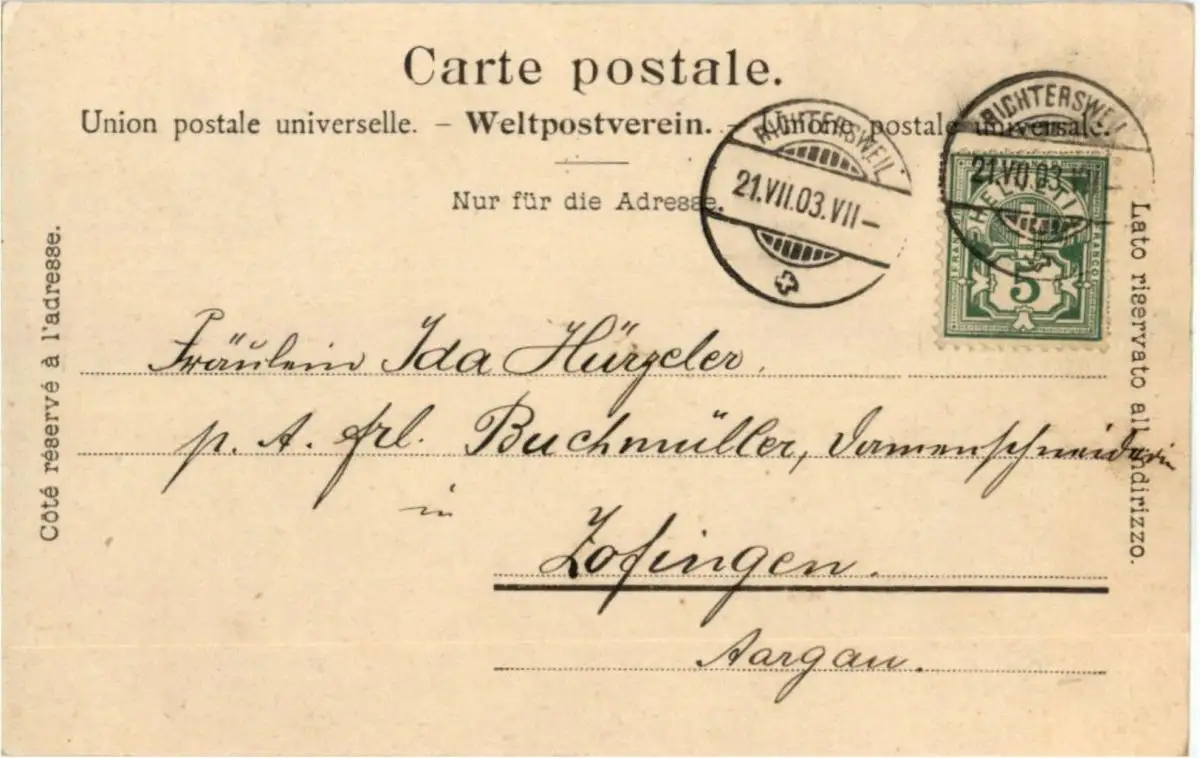 Carte postale.
Union postale universelle. – Weltpostverein. – Unione postale universale.
Nur für die Adresse.
RICHTERSWEIL
21.VII.03.VII–
RICHTERSWEIL
21.VII.03.VII
HELVETIA
FRANCO
FRANCO
5
Côté réservé à l'adresse.
Lato riservato all'indirizzo.
Fräulein Ida Hürzeler.
p. A. Frl. Buchmüller, Damenschneiderin
in
Zofingen.
Aargau.